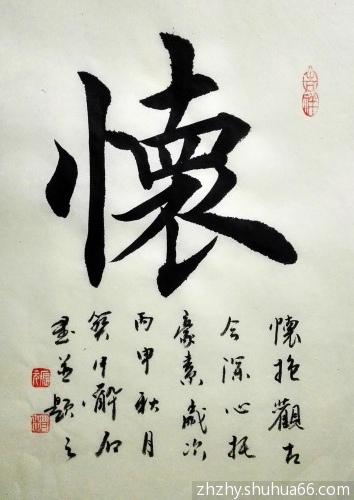 懷
吉祥
懷抱觀古
今深心托
豪素歲次
丙申秋月
醉
墨並題之
zhzhy.shuhua66.com